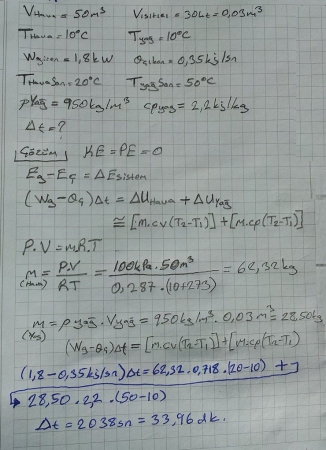 VHava = 50m³ Vısıtıcı = 30Lt = 0,03m³
THava = 10°C Tyağ = 10°C
Wgiren = 1,8 kW Qçıkan = 0,35kj/sn
THavaSon = 20°C TyağSon = 50°C
ρYağ = 950kg/m³ cpyağ = 2,2kj/kg
Δt = ?
Çözüm KE = PE = 0
Eg - Eç = ΔEsistem
(Wg - Qç)Δt = ΔUHava + ΔUYağ
≅ [m.cv(T₂-T₁)] + [m.cp(T₂-T₁)]
P.V = m.R.T
m = P.V / RT = 100kPa.50m³ / 0,287.(10+273) = 62,32kg
(Hava)
m = ρyağ.Vyağ = 950kg/m³.0,03m³ = 28,50kg
(Yağ)
(Wg - Qç)Δt = [m.cv(T₂-T₁)] + [m.cp(T₂-T₁)
(1,8 - 0,35kj/sn)Δt = 62,32.0,718.(20-10) +
28,50.2,2.(50-10)
Δt = 2038sn = 33,96 dk.